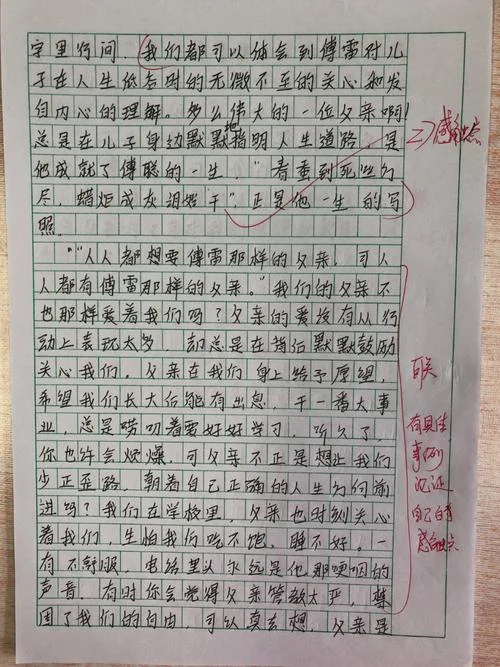 字里行间，我们都可以体会到傅雷对儿
子在人生低谷时的无微不至的关心和发
自内心的理解。多么伟大的一位父亲啊！
总是在儿子身边默默地指明人生道路，是
他成就了傅聪的一生，“春蚕到死丝方
尽，蜡炬成灰泪始干”，正是他一生的写
照。
“人人都想要傅雷那样的父亲，可人
人都有傅雷那样的父亲。”我们的父亲不
也那样爱着我们吗？父亲的爱没有从行
动上表现太多，却总是在背后默默鼓励
关心我们。父亲在我们身上给予厚望，
希望我们长大后能有出息，干一番大事
业，总是唠叨着要好好学习，听久了，
你也许会烦燥，可父亲不正是想让我们
少走歪路，朝着自己正确的人生方向前
进吗？我们在学校里，父亲也时刻关心
着我们，生怕我们吃不饱，睡不好。一
有不舒服，电话里头永远是他那哽咽的
声音。有时你会觉得父亲管教太严，禁
围了我们的自由，可认真去想，父亲是
可联
有具体
事例
论证
自己的